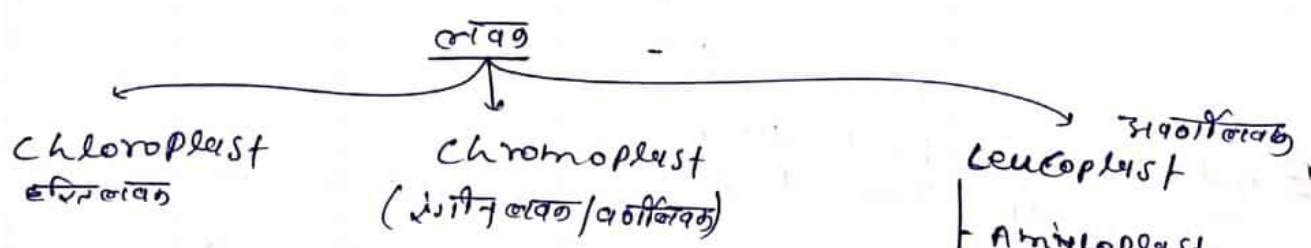 लवक -
Chloroplast
हरितलवक
Chromoplast
(रंगीन लवक / वर्णीलवक)
अवर्णीलवक
Leucoplast
Amyloplast